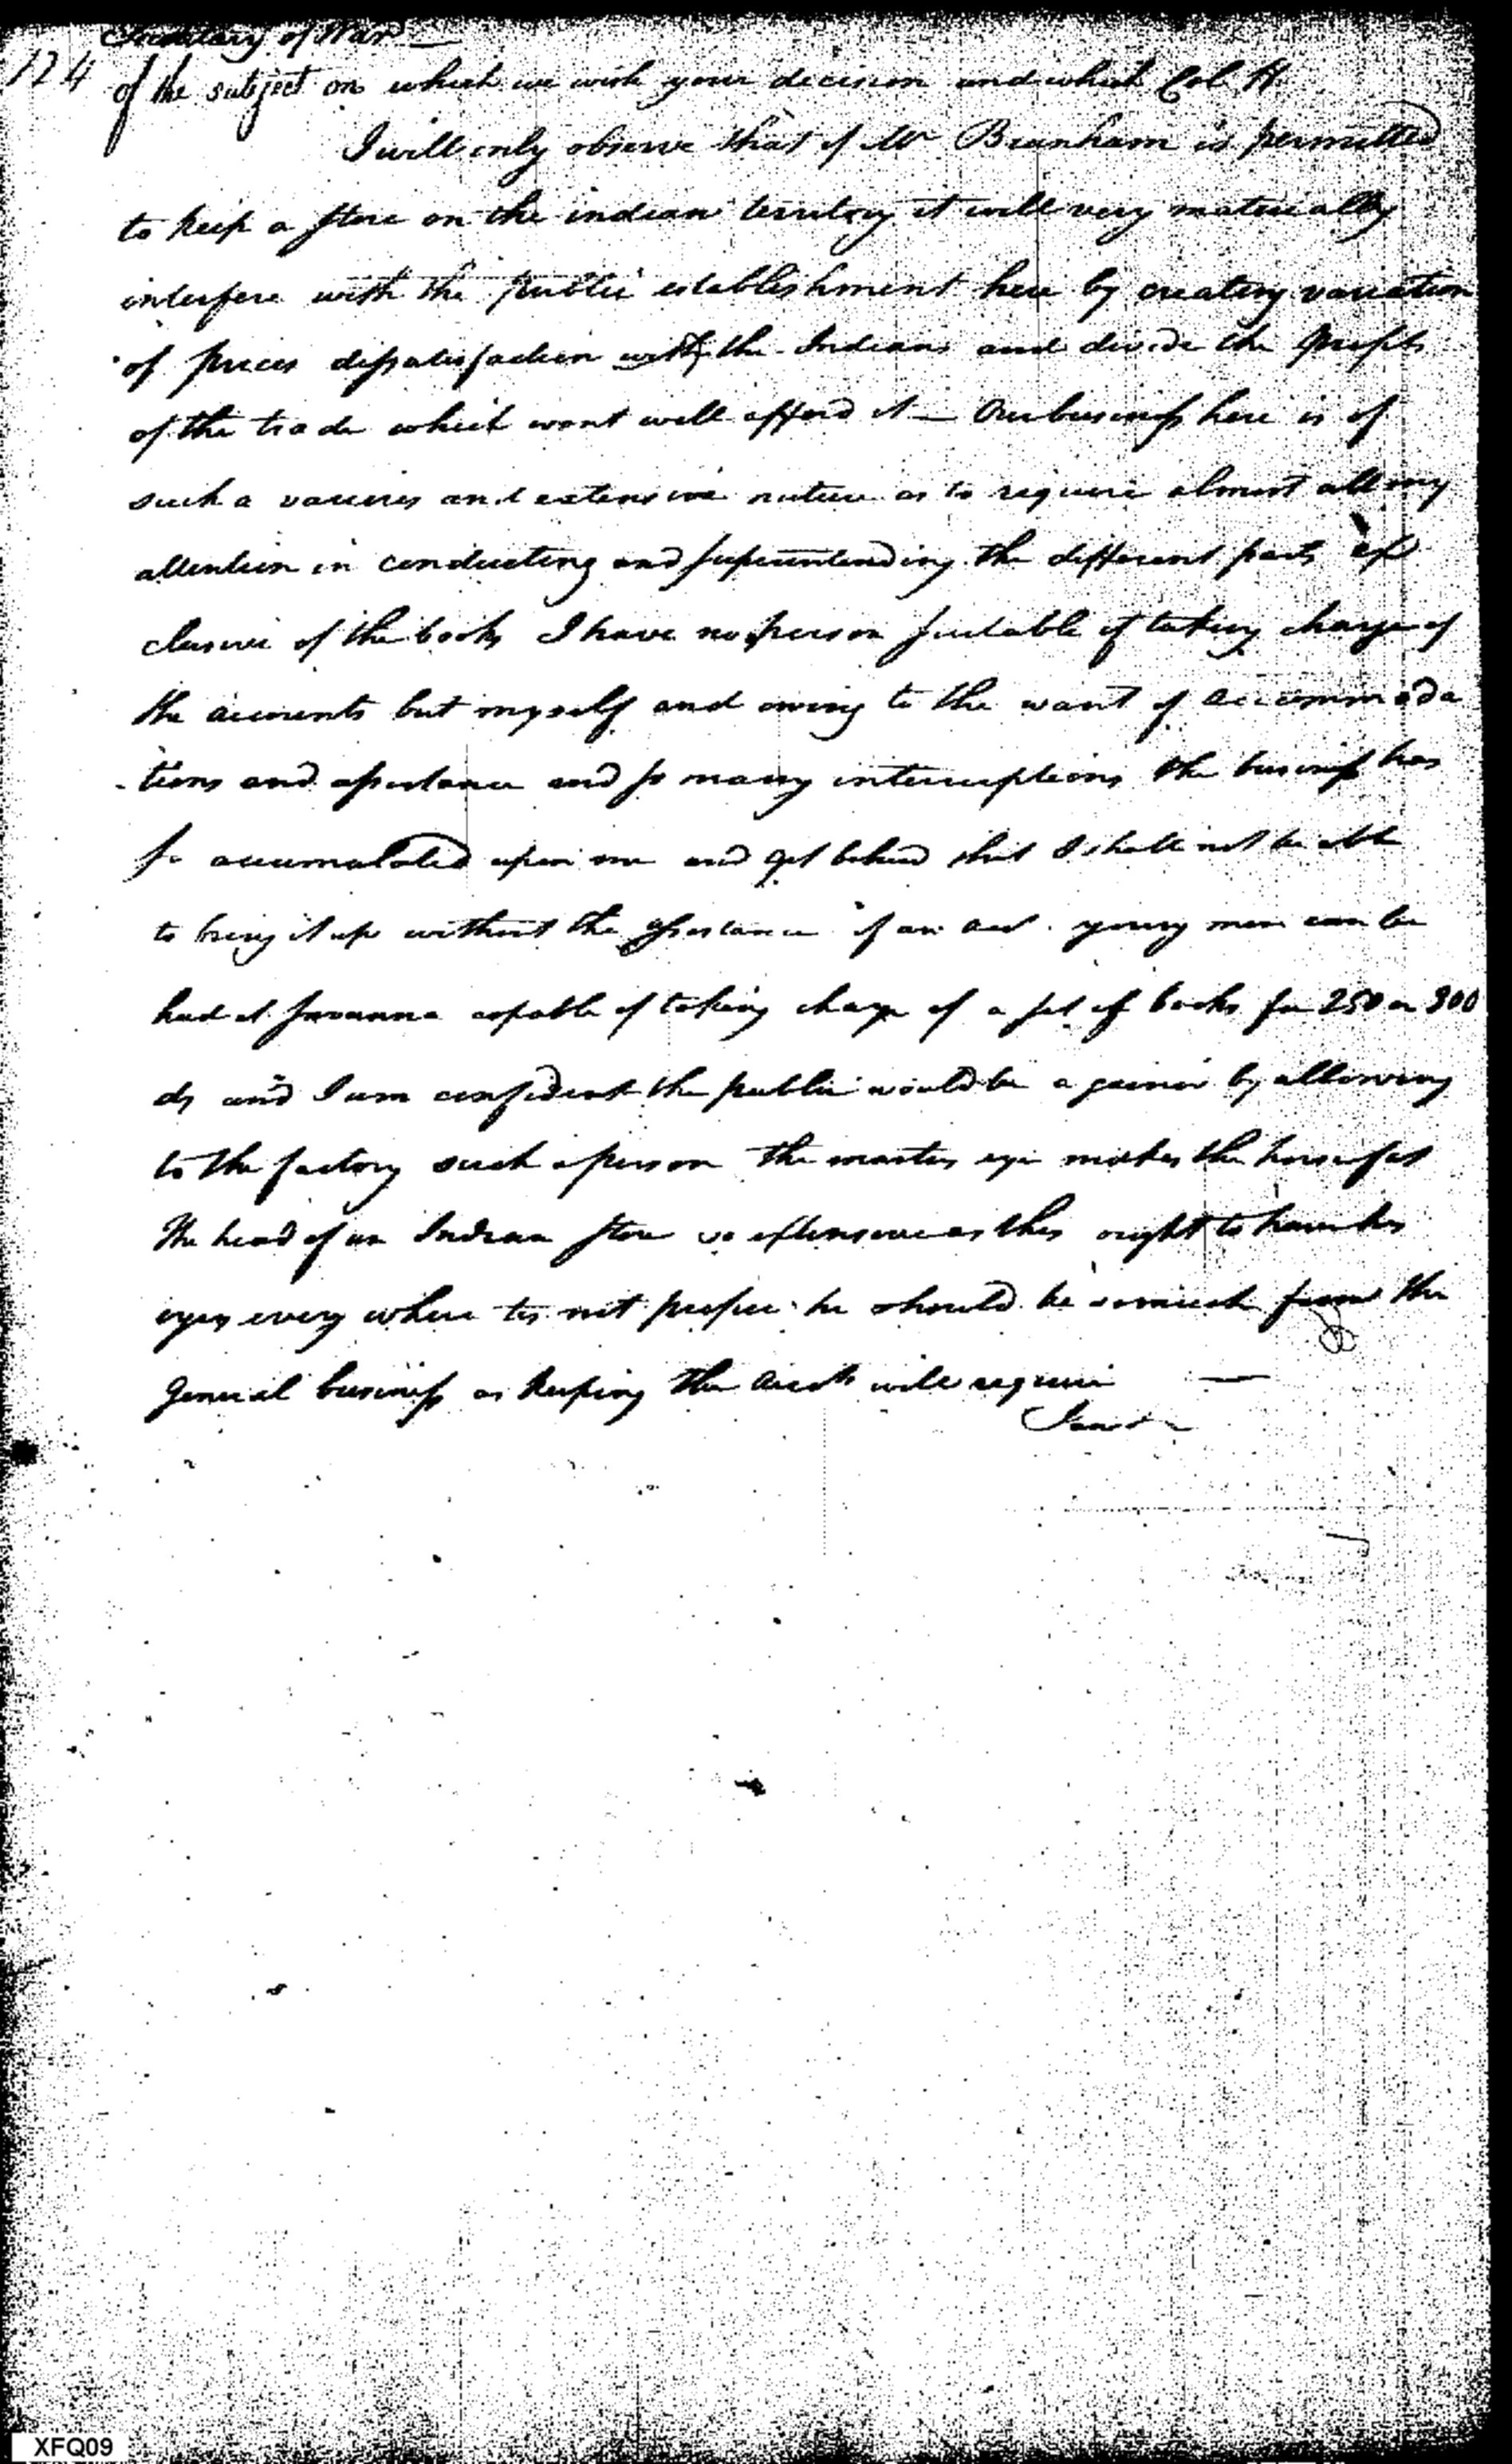 Secretary of War —
124
of the subject on which we wish your decision and which Col. H
I will only observe that if Mr Burnham is permitted
to keep a store on the indian territory it will very materially
interfere with the public establishment here by creating variation
of prices dissatisfaction with the Indians and devide the profits
of the trade which wont well afford it — Our business here is of
such a various and extensive nature as to require almost all my
attention in conducting and superintending the different parts ex
clusive of the books I have no person suitable of taking charge of
the accounts but myself and owing to the want of accommoda
-tions and assistance and so many interruptions the business has
so accumulated upon me and got behind that I shall not be able
to bring it up without the assistance of an aid. young men can be
had at Savanna capable of taking charge of a set of books for 250 or 300
ds and I am confident the public would be a gainer by allowing
to the factory such a person the masters eye makes the horse fat
the head of an Indian store so extensive as this ought to have his
eyes every where tis not proper he should be so much from the
general business as keeping the accts will require —
I am &
XFQ09